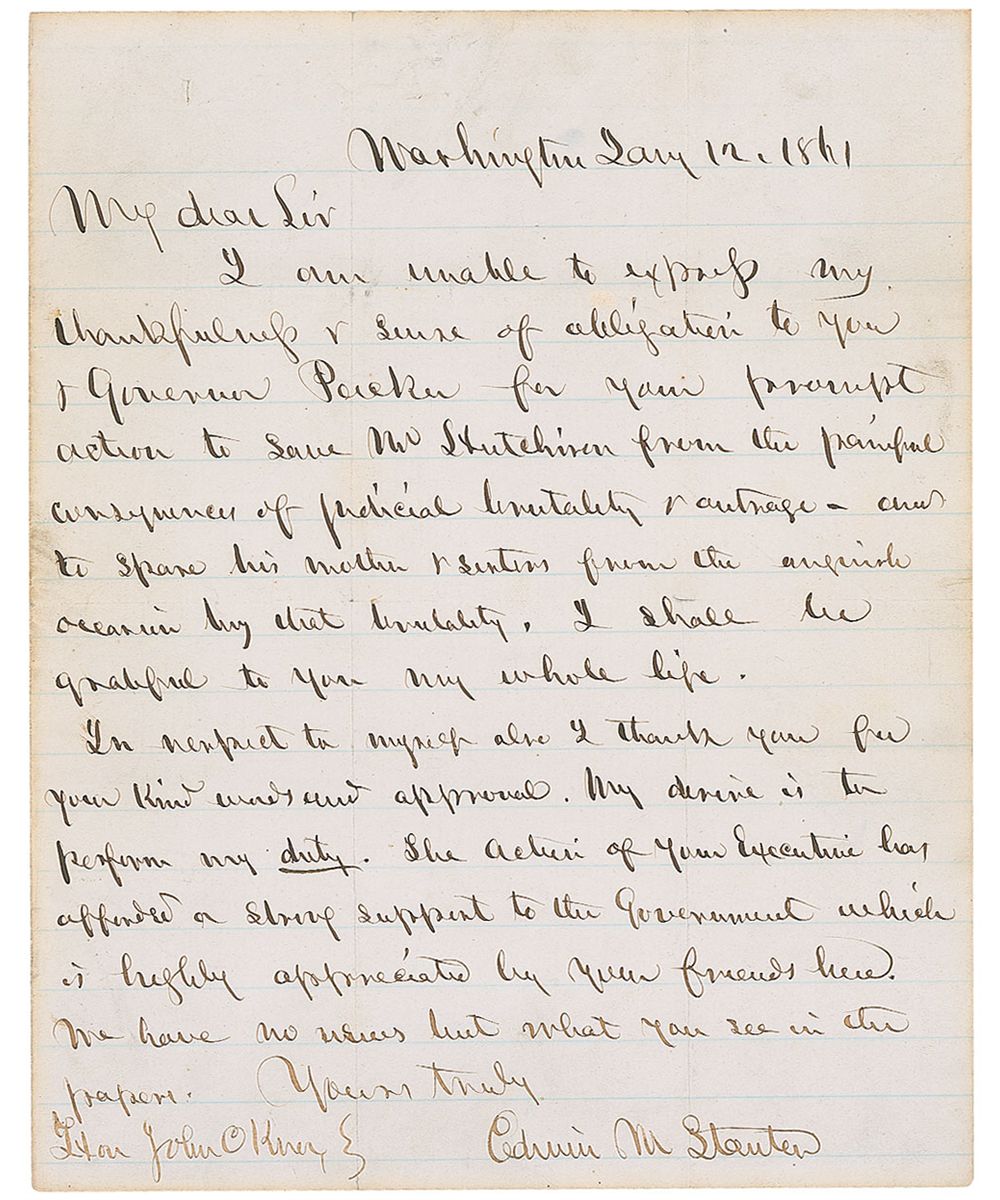 Washington Jany 12. 1861
My dear Sir
I am unable to express my
thankfulness & sense of obligation to you
& Governor Packer for your prompt
action to save Mr Hutchison from the painful
consequences of judicial brutality & outrage – and
to spare his mother & sisters from the anguish
occasion by that brutality. I shall be
grateful to you my whole life.
In respect to myself also I thank you for
your kind words and approval. My desire is to
perform my duty. The action of your Executive has
afforded a strong support to the Government which
is highly appreciated by your friends here.
We have no news but what you see in the
papers. Yours truly
Hon John C Knox } Edwin M Stanton